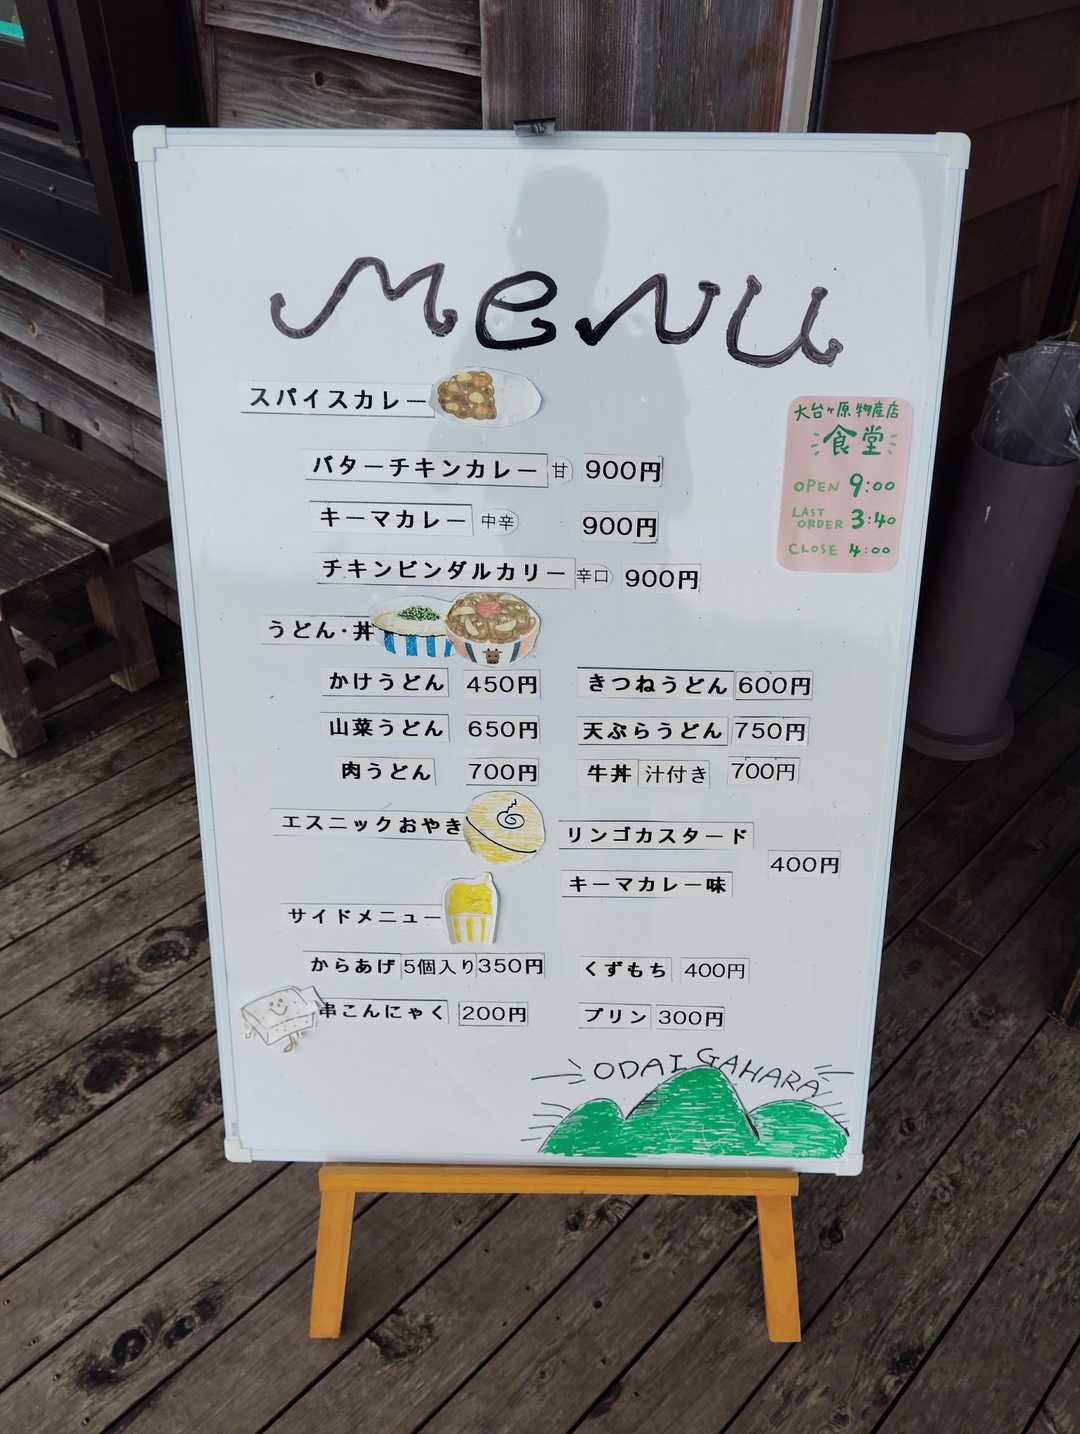 MENU
スパイスカレー
バターチキンカレー 甘 900円
キーマカレー 中辛 900円
チキンビンダルカリー 辛口 900円
大台ヶ原物産店
食堂
OPEN 9:00
LAST ORDER 3:40
CLOSE 4:00
うどん・丼
かけうどん 450円 きつねうどん 600円
山菜うどん 650円 天ぷらうどん 750円
肉うどん 700円 牛丼 汁付き 700円
エスニックおやき リンゴカスタード
400円
キーマカレー味
サイドメニュー
からあげ 5個入り 350円 くずもち 400円
串こんにゃく 200円 プリン 300円
ODAIGAHARA